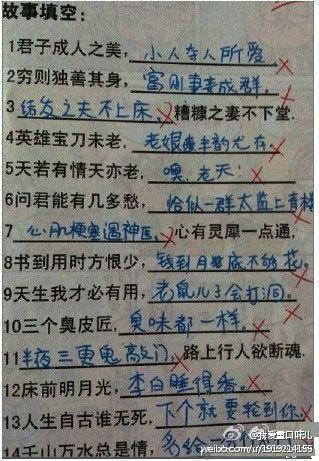 故事填空：
1君子成人之美，小人夺人所爱。
2穷则独善其身，富则妻妾成群。
3结发之夫不上床，糟糠之妻不下堂.
4英雄宝刀未老，老娘风韵尤存。
5天若有情天亦老，噢，老天！
6问君能有几多愁，恰似一群太监上青楼
7心肌梗塞遇神医，心有灵犀一点通，
8书到用时方恨少，钱到月底不够花。
9天生我才必有用，老鼠儿子会打洞。
10三个臭皮匠，臭味都一样。
11半夜三更鬼敲门，路上行人欲断魂.
12床前明月光，李白睡得香。
13人生自古谁无死，下个就要轮到你
14千山万水总是情，多给一
@我爱重口味儿
weibo.com/u/1919214155